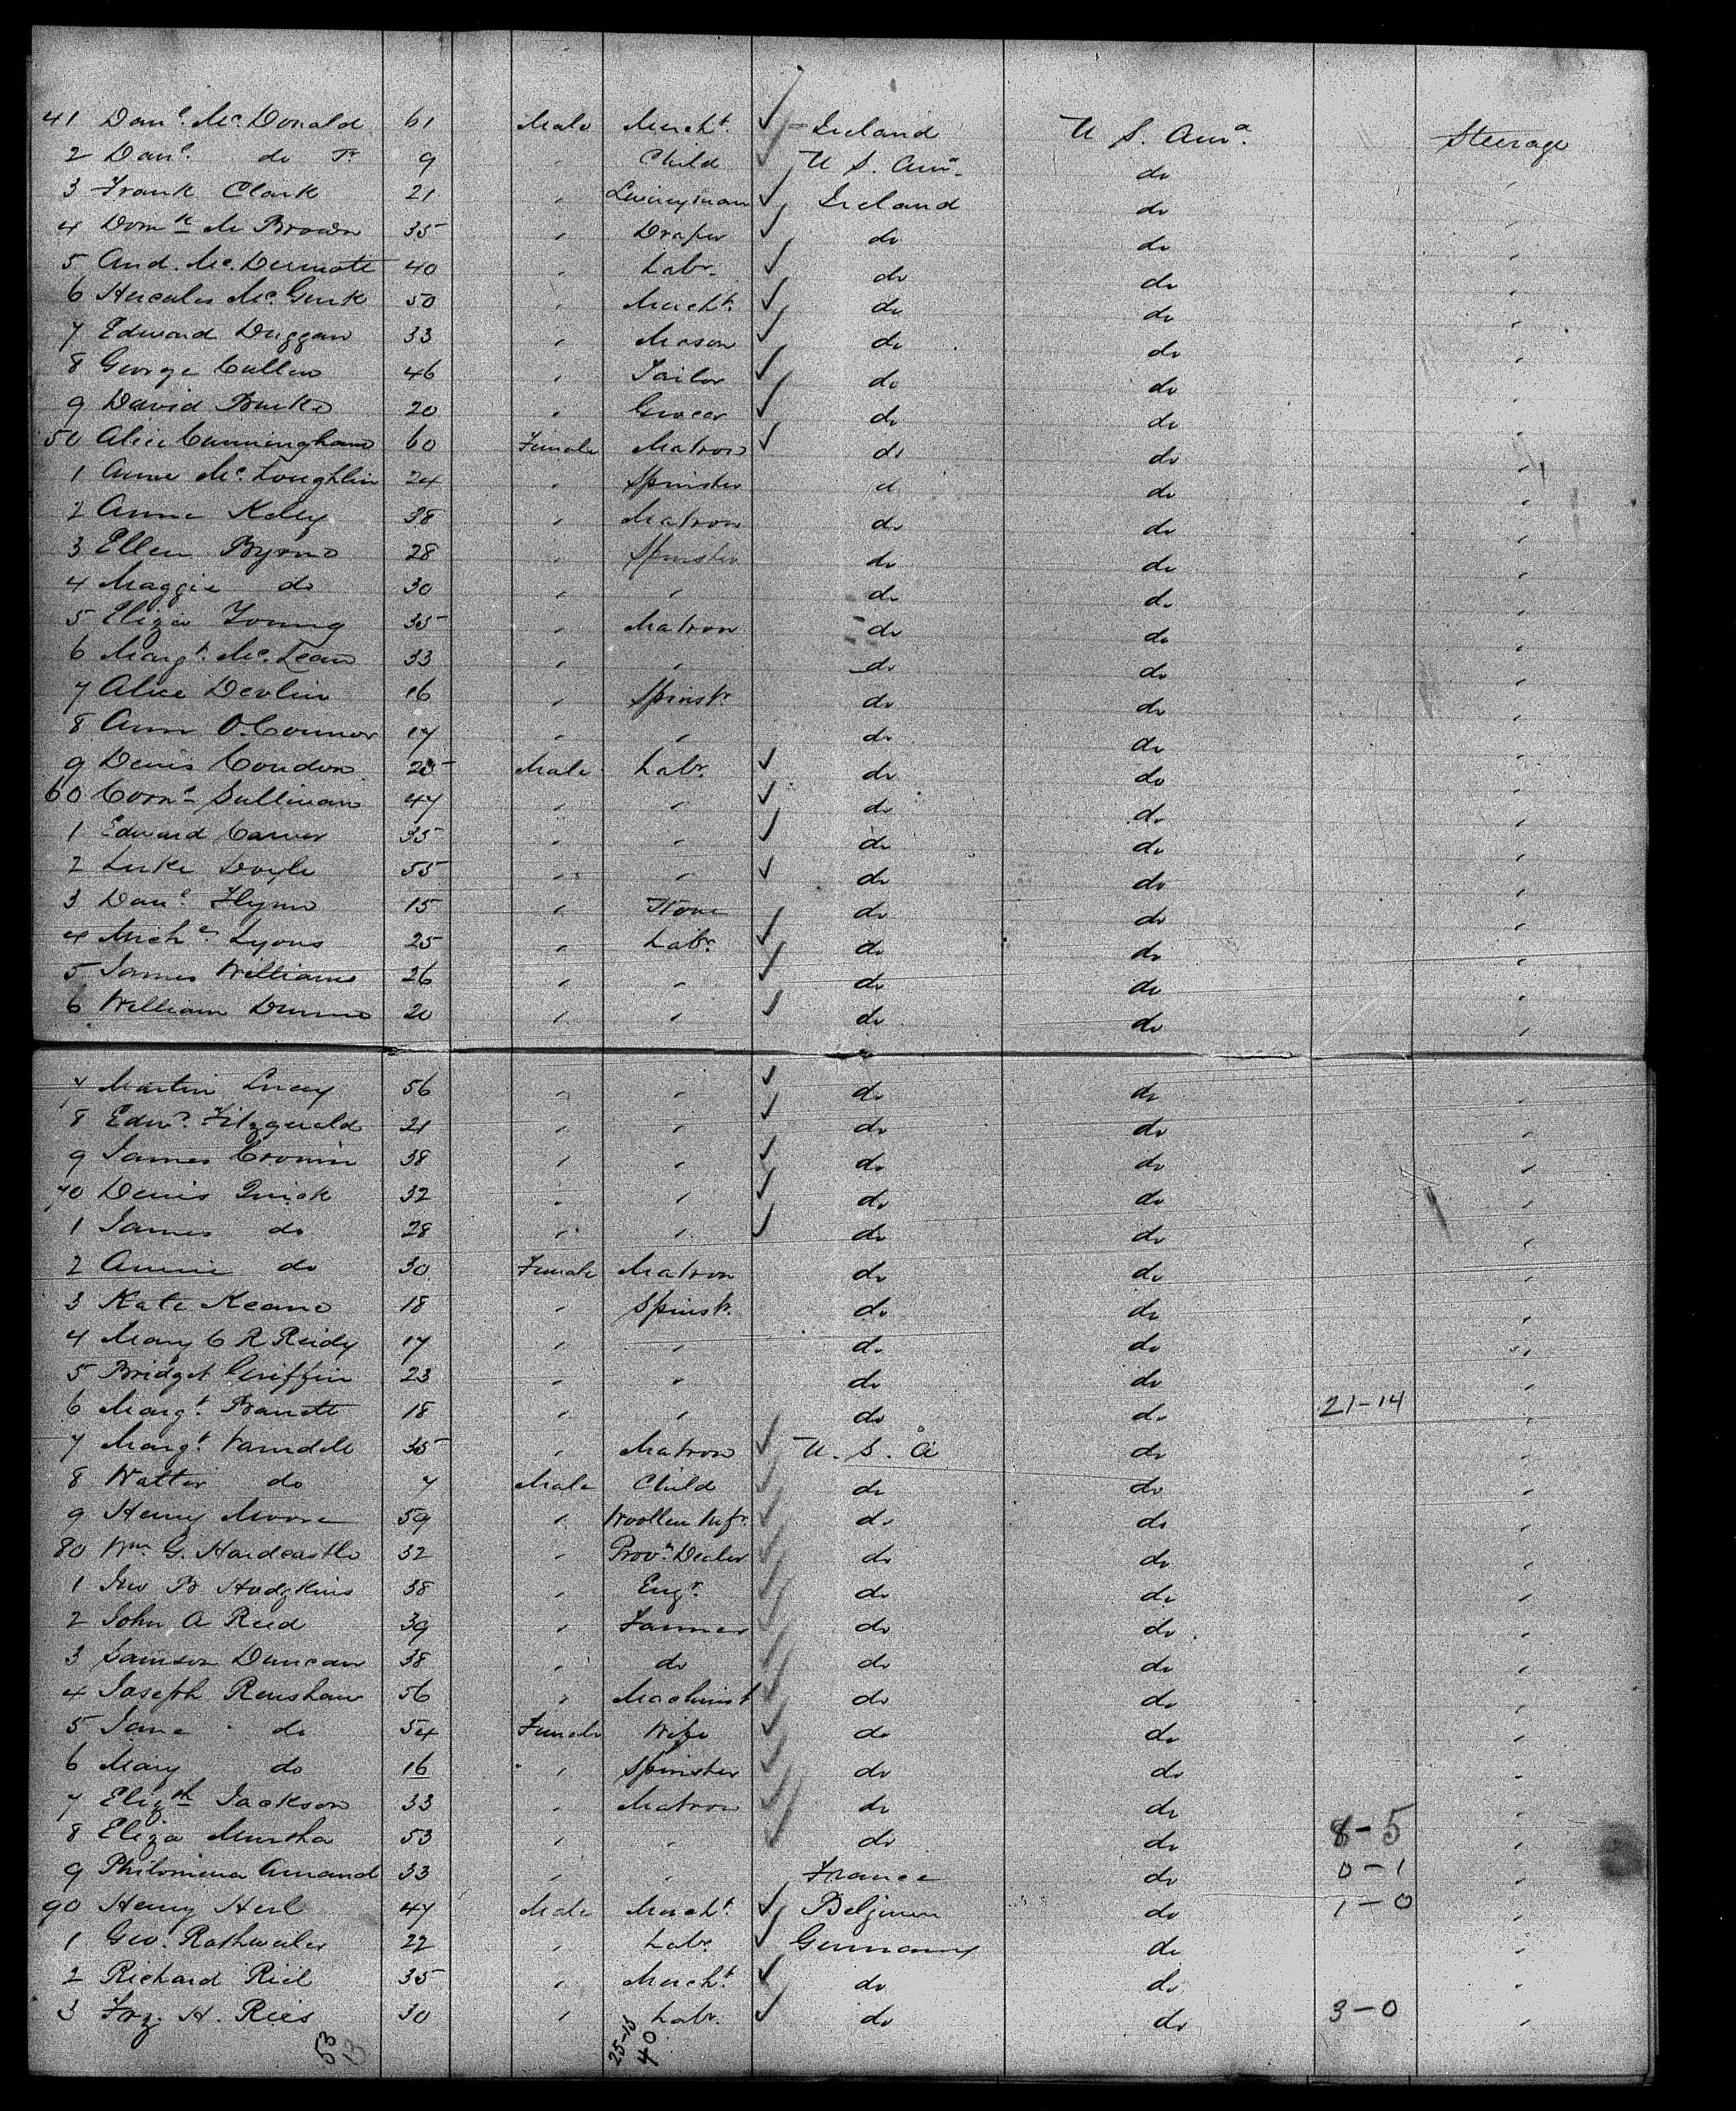 41 Danl. Mc.Donald 61 Male Mercht. Ireland U S. Ama. Steerage
2 Danl. do Jr 9 " Child U S. Ama. do "
3 Frank Clark 21 " Ireland do "
4 Domk Mc Brown 35 " Draper do do "
5 And. Mc.Dermott 40 " Labr. do do "
6 Hercules Mc.Gurk 50 " Mercht. do do "
7 Edward Duggan 33 " Mason do do "
8 George Cullen 46 " Tailor do do "
9 David Burke 20 " Grocer do do "
50 Alice Cunningham 60 Female Matron do do "
1 Anne Mc.Loughlin 24 " Spinster d do "
2 Anne Kelly 38 " Matron do do "
3 Ellen Byrne 28 " Spinster do do "
4 Maggie do 30 " " do do "
5 Eliza Young 35 " Matron do do "
6 Margt. Mc.Lean 33 " " do do "
7 Alice Devlin 16 " Spinstr. do do "
8 Ann O.Connor 17 " " do do "
9 Denis Condon 25 Male Labr. do do "
60 Corns Sullivan 47 " " do do "
1 Edward Carver 35 " " do do "
2 Luke Doyle 55 " " do do "
3 Danl. Flynn 15 " None do do "
4 Michl. Lyons 25 " Labr. do do "
5 James Williams 26 " " do do "
6 William Dunne 20 " " do do "
7 Martin Lucey 56 " " do do "
8 Edwd. Fitzgerald 21 " " do do "
9 James Cronin 38 " " do do "
70 Denis Quick 32 " " do do "
1 James do 28 " " do do "
2 Annie do 30 Female Matron do do "
3 Kate Keane 18 " Spinstr. do do "
4 Mary C R Reidy 17 " " do do "
5 Bridget Griffin 23 " " do do "
6 Margt. Barrett 18 " " do do 21-14 "
7 Margt. 35 " Matron U. S. A do "
8 Walter do 7 Male Child do do "
9 Henry Moore 59 " Woollen Mfr. do do "
80 Wm G. Hardcastle 32 " Provn Dealer do do "
1 Jno B Hodgkins 38 " Engr. do do "
2 John A Reed 39 " Farmer do do "
3 Samson Duncan 38 " do do do "
4 Joseph Renshaw 56 " Machinist do do "
5 Jane do 54 Female Wife do do "
6 Mary do 16 " Spinster do do "
7 Elizth Jackson 33 " Matron do do "
8 Eliza Murtha 53 " " do do 8-5 "
9 Philomena Amand 33 " " France do 0-1 "
90 Henry Herl 47 Male Mercht. Belgium do 1-0 "
1 Geo. Rothweiler 22 " Labr. Germany do "
2 Richard Riel 35 " Mercht. do do "
3 Frz. H. Ries 30 " Labr. do do 3-0 "
53
13
25-15
40